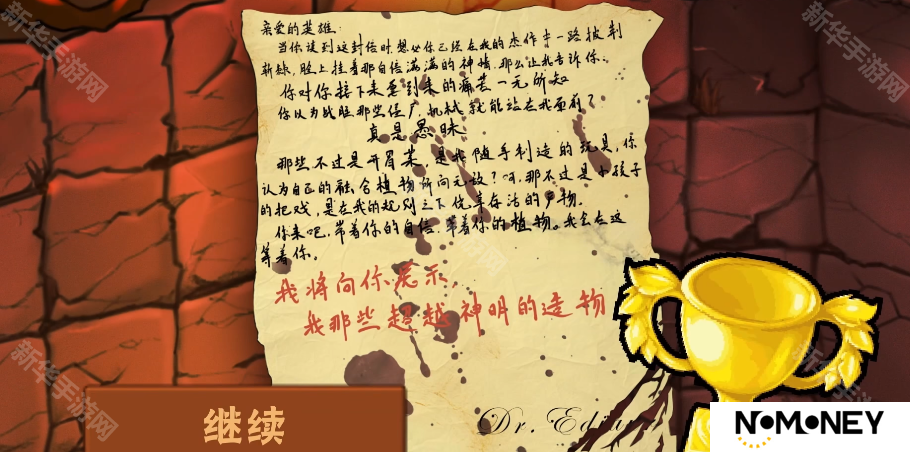 亲爱的英雄:
当你读到这封信时想必你已经在我的杰作中一路披荆
斩棘,脸上挂着那自信满满的神情,那么让我告诉你:
你对你接下来要到来的痛苦一无所知
你以为战胜那些僵尸,机械就能站在我面前?
真是愚昧
那些不过是开胃菜,是我随手制造的玩具,你
认为自己的融合植物所向无敌?呵,那不过是小孩子
的把戏,是在我的规则之下优等存活的产物.
你来吧,带着你的自信,带着你的植物。我会在这
等着你。
我将向你展示,
我那些超越神明的造物
Dr.
继续
NOMONEY
新华手游网
新华手游网
新华手游网
新华手游网
新华手游网
新华手游网
新华手游网